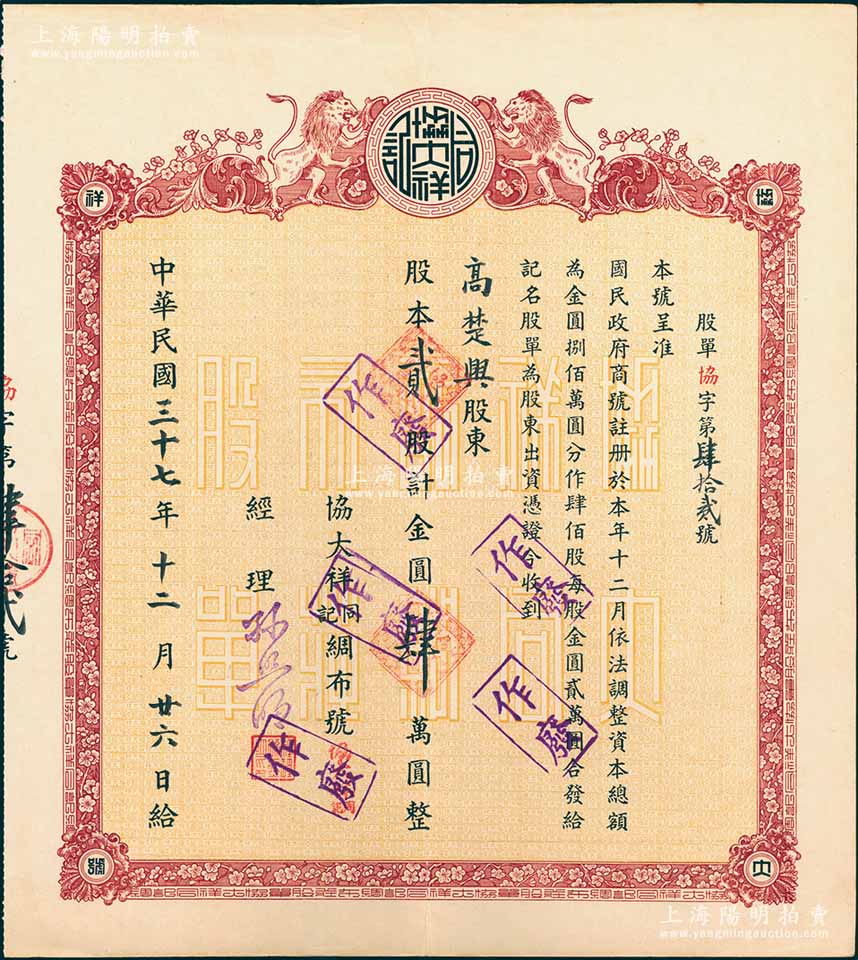 上海陽明拍賣
www.yangmingauction.com
協大祥同記
協
大
祥
號
股單協字第肆拾貳號
本號呈准
國民政府商號註册於本年十二月依法調整資本總額
為金圓捌佰萬圓分作肆佰股每股金圓貳萬圓合發給
記名股單為股東出資憑證今收到
高楚興股東
股本貳股計金圓肆萬圓整
協大祥同記綢布號
經理
中華民國三十七年十二月廿六日給
協字第肆拾貳號
作廢
作廢
作廢
作廢
作廢
上海陽明拍賣
www.yangmingauction.com
上海陽明拍賣
www.yangmingauction.com